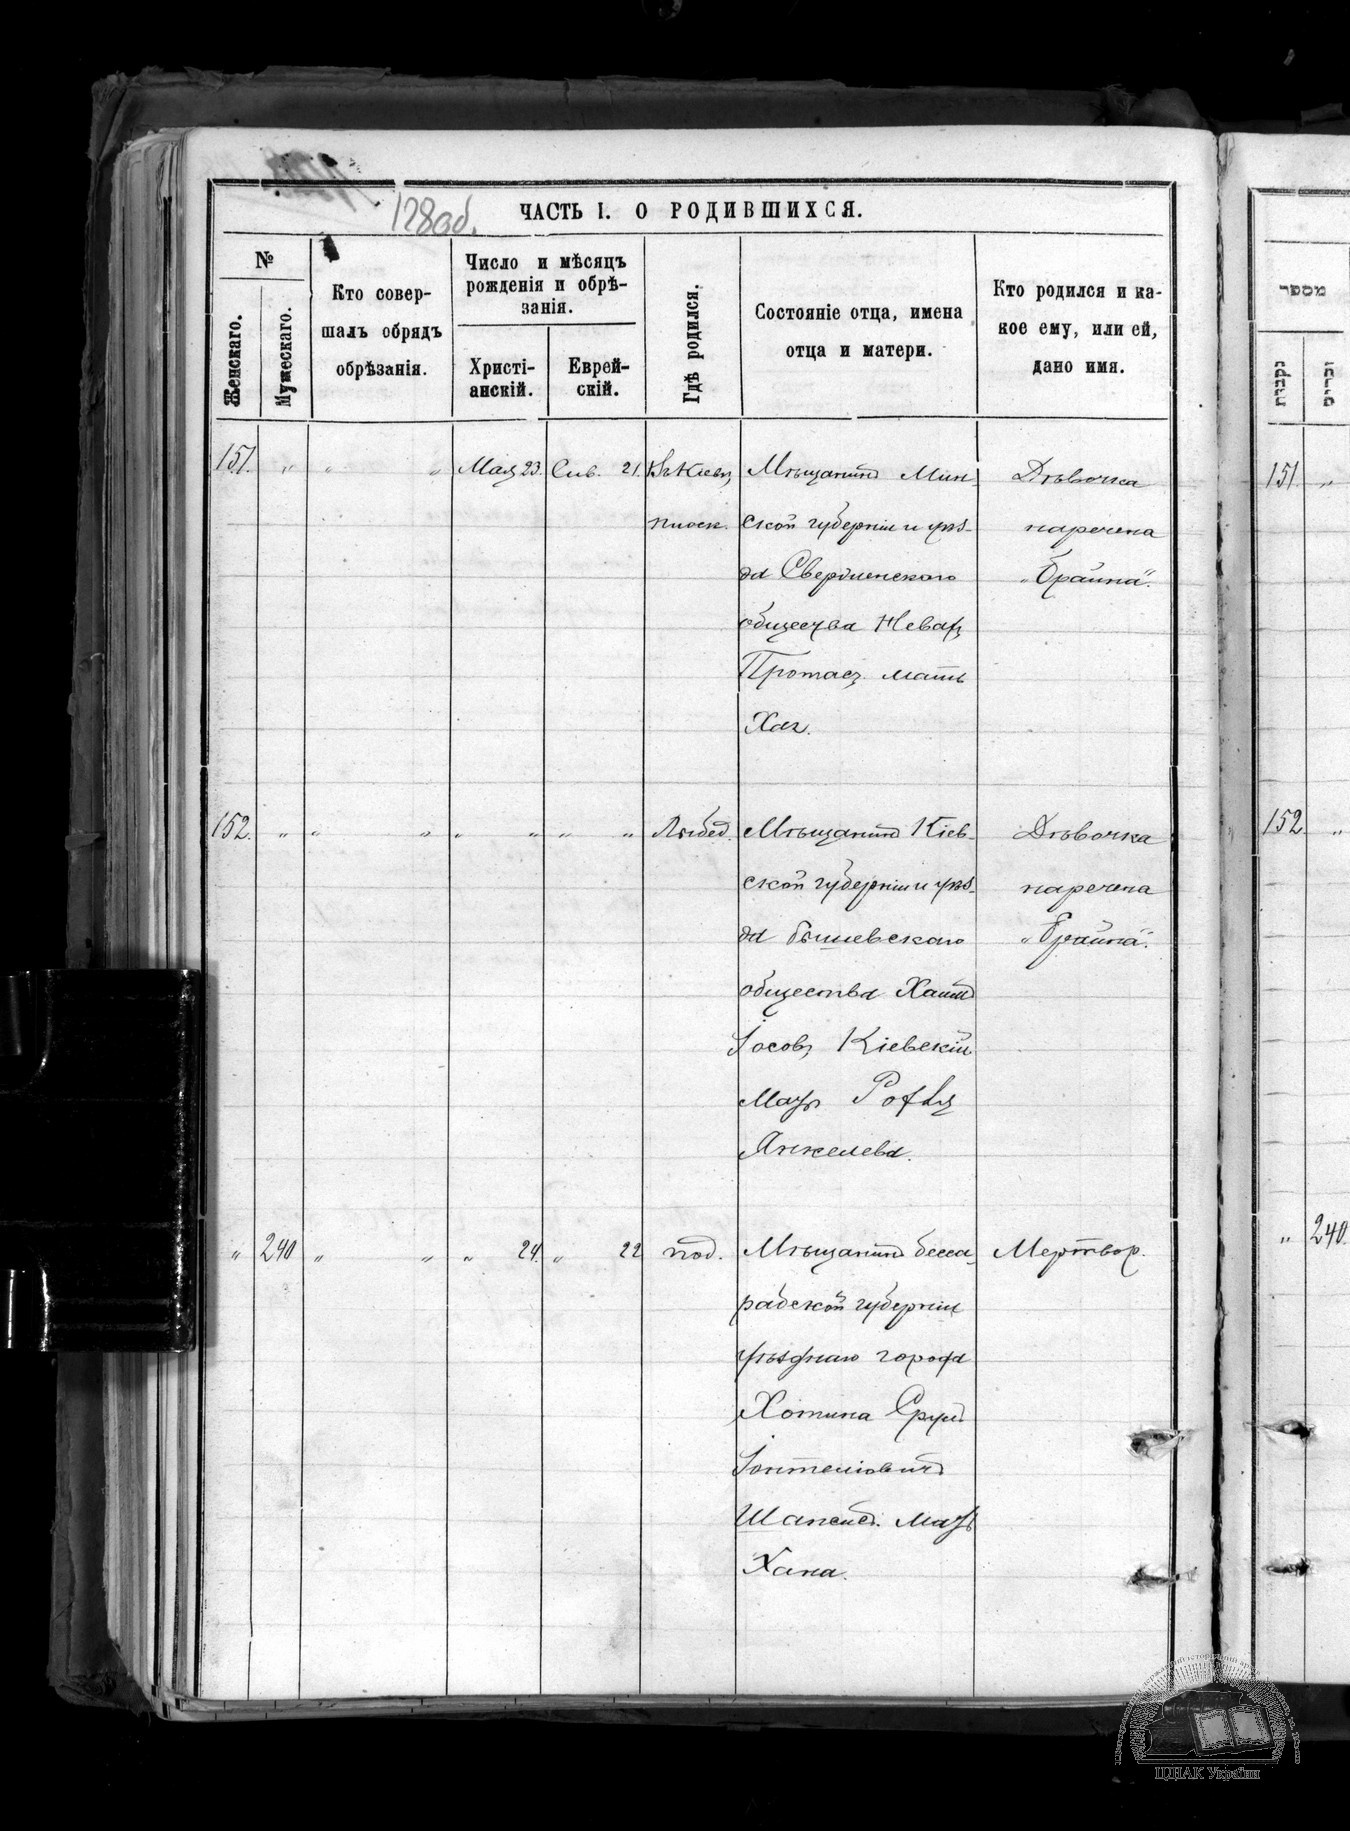 128об.
ЧАСТЬ I. О РОДИВШИХСЯ.
№
Женскаго.
Мужескаго.
Кто совер-
шалъ обрядъ
обрѣзанія.
Число и мѣсяцъ
рожденія и обрѣ-
занія.
Христі-
анскій.
Еврей-
скій.
Гдѣ родился.
Состояніе отца, имена
отца и матери.
Кто родился и ка-
кое ему, или ей,
дано имя.
151. " " " Мая 23. Сив. 21. Въ Кіевѣ,
плоск.
Мѣщанинъ Мин-
ской губерніи и уѣз-
да
общества
Протасъ, мать
Девочка
наречена
„Брайна".
152. " " " " " " " Лыбед.
Мѣщанинъ Кіев-
ской губерніи и уѣз-
да Бышевскаго
общества Хаимъ
Іосовъ Кіевскій
мать
Янкелева.
Девочка
наречена
„Брайна".
" 240 " " " 24. " 22 под.
Мѣщанинъ бесса-
рабской губерніи
уѣзднаго города
Хотина Срулъ
Шапсисъ. мать
Хана.
Мертвор.
מספר
נקבות
זכרים
151 "
152 "
" 240.
ЦДІАК України